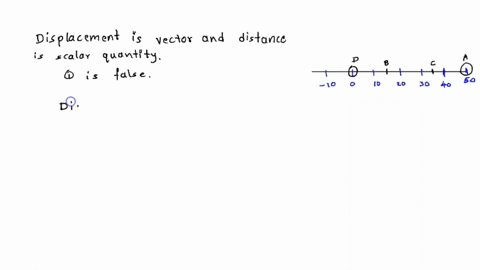 Displacement is vector and distance
is scalar quantity.
① is false.
Di
D B C A
-10 0 10 20 30 40 50